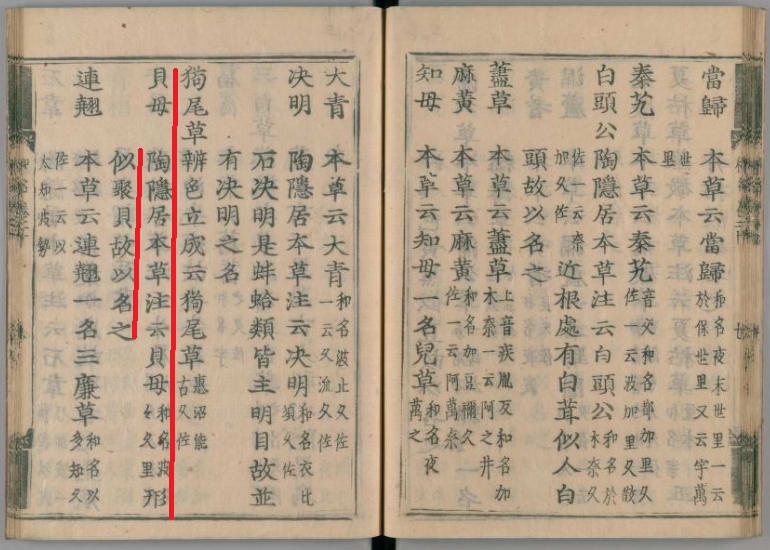 當歸 本草云當歸 和名夜末世里一云於保世里又云宇萬
世里
秦艽 本草云秦艽 音交和名都加里久佐一云波加里久散
白頭公 陶隱居本草注云白頭公 和名於木奈久
佐一云奈加久佐 近根處有白茸似人白
頭故以名之
藎草 本草云藎草 上音疾胤反和名加木奈一云阿之井
麻黃 本草云麻黃 和名加豆禰久佐一云阿萬奈
知母 本草云知母一名兒草 和名夜萬之
大青 本草云大青 和名波止久佐一云久流久佐
决明 陶隱居本草注云决明 和名衣比須久佐
石决明是蚌蛤類皆主明目故並
有决明之名
㺃尾草 辨色立成云㺃尾草 惠沼能古久佐
貝母 陶隱居本草注云貝母 和名波々久里 形
似聚貝故以名之
連翹 本草云連翹一名三廉草 和名以多知久
佐一云以太知波勢